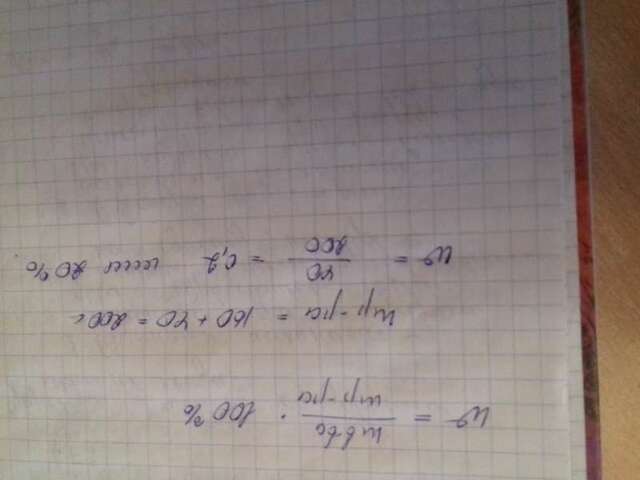 ω = mв-ва / mр-ра · 100%
mр-ра = 160 + 40 = 200 г
ω = 40 / 200 = 0,2 или 20%